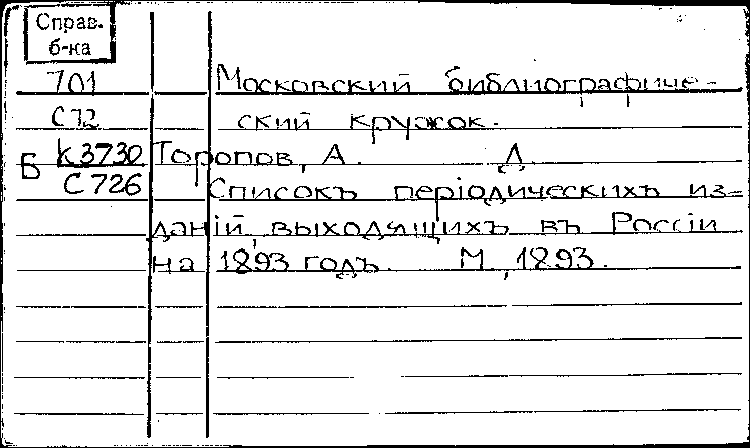 Справ.
б-ка
701 Московский библиографиче-
С72 ский кружок.
Б К3730 Торопов, А. Д.
С726 Списокъ періодическихъ из-
даній, выходящихъ въ Россіи
на 1893 годъ. М., 1893.